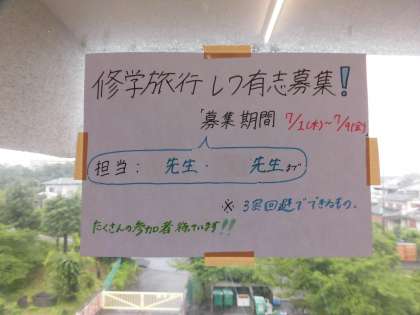 修学旅行 レク有志募集!
「募集期間 7/1(木)~7/9(金)
担当: 先生・ 先生まで
※ 3密回避でできるもの。
たくさんの参加者待っています!!